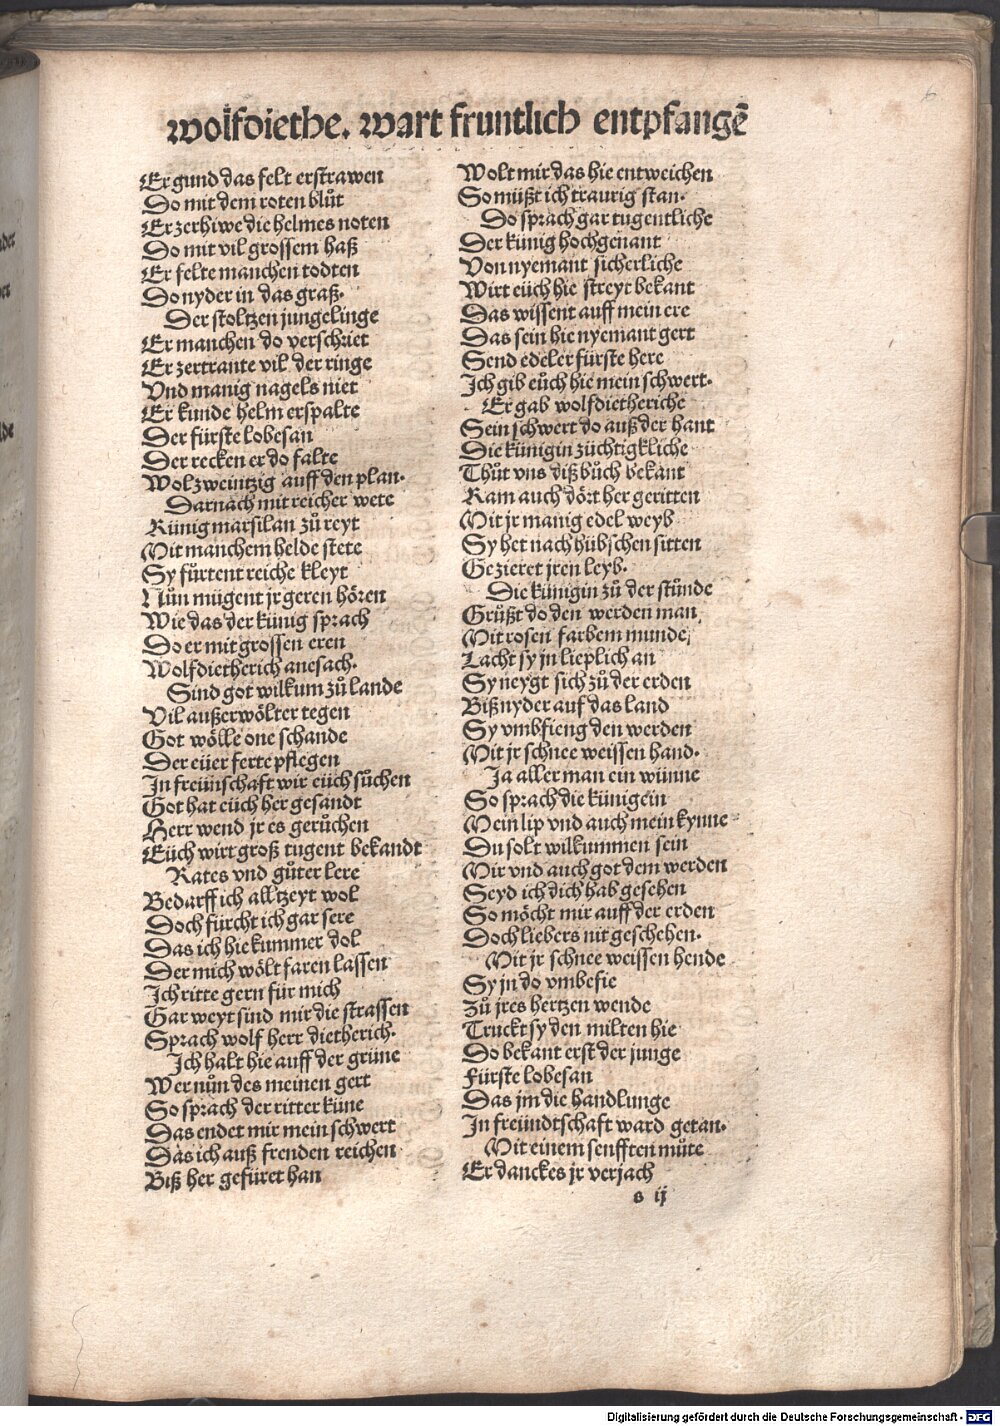 wolfdiethe. wart fruntlich entpfangẽ
Er gund das felt erstrawen
Do mit dem roten blůt
Er zerhiwe die helmes noten
Do mit vil grossem haß
Er felte manchen todten
Do nyder in das graß.
Der stoltzen jungelinge
Er manchen do verschriet
Er zertrante vil der ringe
Vnd manig nagels niet
Er kunde helm erspalte
Der fürste lobesan
Der recken er do falte
Wol zweintzig auff den plan.
Darnach mit reicher wete
Künig marsilan zů reyt
Mit manchem helde stete
Sy fůrtent reiche kleyt
Nůn mügent jr geren hören
Wie das der künig sprach
Do er mit grossen eren
Wolfdietherich anesach.
Sind got wilkum zů lande
Vil außerwölter tegen
Got wölle one schande
Der eüer ferte pflegen
In freüntschaft wir eüch sůchen
Got hat eüch her gesandt
Herr wend jr es gerůchen
Eüch wirt groß tugent bekandt
Rates vnd gůter lere
Bedarff ich alltzeyt wol
Doch fürcht ich gar sere
Das ich hie kummer dol
Der mich wölt faren lassen
Ich ritte gern für mich
Gar weyt sind mir die strassen
Sprach wolf herr dietherich.
Ich halt hie auff der grüne
Wer nůn des meinen gert
So sprach der ritter küne
Das endet mir mein schwert
Das ich auß frenden reichen
Biß her gefüret han
Wolt mir das hie entweichen
So můßt ich traurig stan.
Do sprach gar tugentliche
Der künig hochgenant
Von nyemant sicherliche
Wirt eüch hie streyt bekant
Das wissent auff mein ere
Das sein hie nyemant gert
Send edeler fürste here
Ich gib eüch hie mein schwert.
Er gab wolfdietheriche
Sein schwert do auß der hant
Die künigin züchtigkliche
Thůt vns diß bůch bekant
Kam auch dört her geritten
Mit jr manig edel weyb
Sy het nach hübschen sitten
Gezieret jren leyb.
Die künigin zů der stunde
Grüßt do den werden man
Mit rosen farbem munde
Lacht sy jn lieplich an
Sy neygt sich zů der erden
Biß nyder auf das land
Sy vmbfieng den werden
Mit jr schnee weissen hand.
Ja aller man ein wünne
So sprach die künigein
Mein lip vnd auch mein kynne
Du solt wilkummen sein
Mir vnd auch got dem werden
Seyd ich dich hab gesehen
So möcht mir auff der erden
Doch liebers nit geschehen.
Mit jr schnee weissen hende
Sy jn do vmbefie
Zů jres hertzen wende
Truckt sy den milten hie
Do bekant erst der junge
Fürste lobesan
Das jm die handlunge
In freündtschaft ward getan.
Mit einem senfften můte
Er danckes jr verjach
s ij
Digitalisierung gefördert durch die Deutsche Forschungsgemeinschaft - DFG